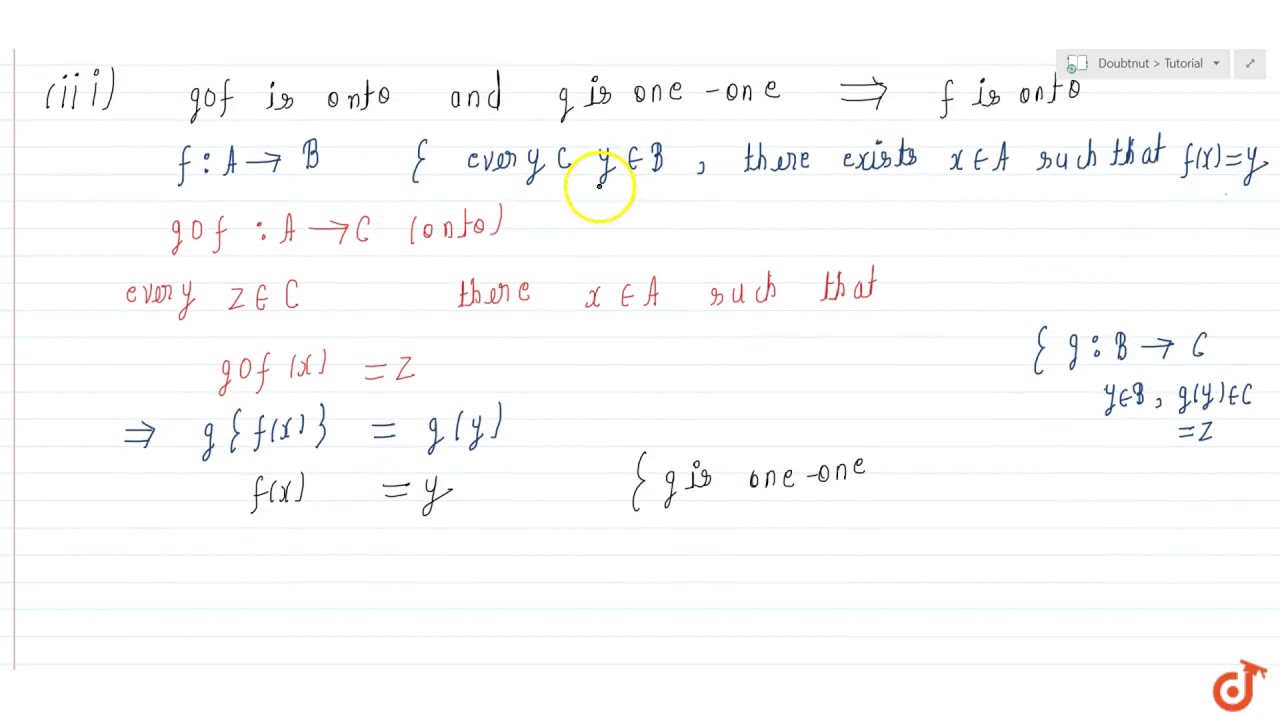 Doubtnut > Tutorial
(iii) gof is onto and g is one-one ⟹ f is onto
f : A → B { every C y ∈ B , there exists x ∈ A such that f(x) = y
gof : A → C (onto)
every z ∈ C there x ∈ A such that
{ g : B → C
gof (x) = z
y ∈ B , g(y) ∈ C
⇒ g{f(x)} = g(y)
= z
f(x) = y { g is one-one